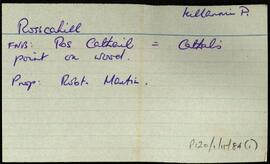 Killannin P.
Rosscahill
FNB: Ros Cathail = Cathal's
point or wood.
Prop: Robt. Martin.
P120/1/11/84 (1)